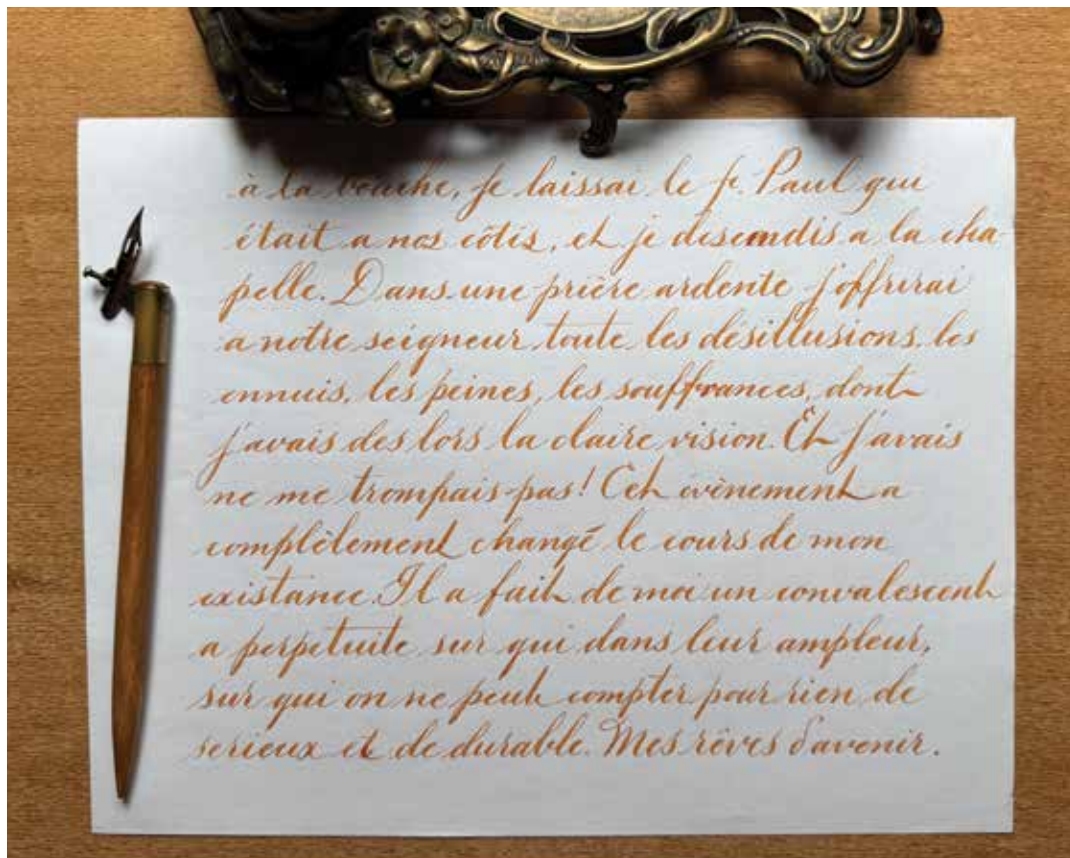 à la bouche, je laissai le fr. Paul qui
était a nos côtis, et je descendis a la cha-
pelle. Dans une prière ardente j'offrirai
a notre seigneur toute les désillusions, les
ennuis, les peines, les souffrances, dont
j'avais des lors la claire vision. Et j'avais
ne me trompais pas! Cet evènement a
complètement changé le cours de mon
existance. Il a fait de moi un convalescent
a perpetuite sur qui dans leur ampleur,
sur qui on ne peut compter pour rien de
serieux et de durable. Mes rêves d'avenir.